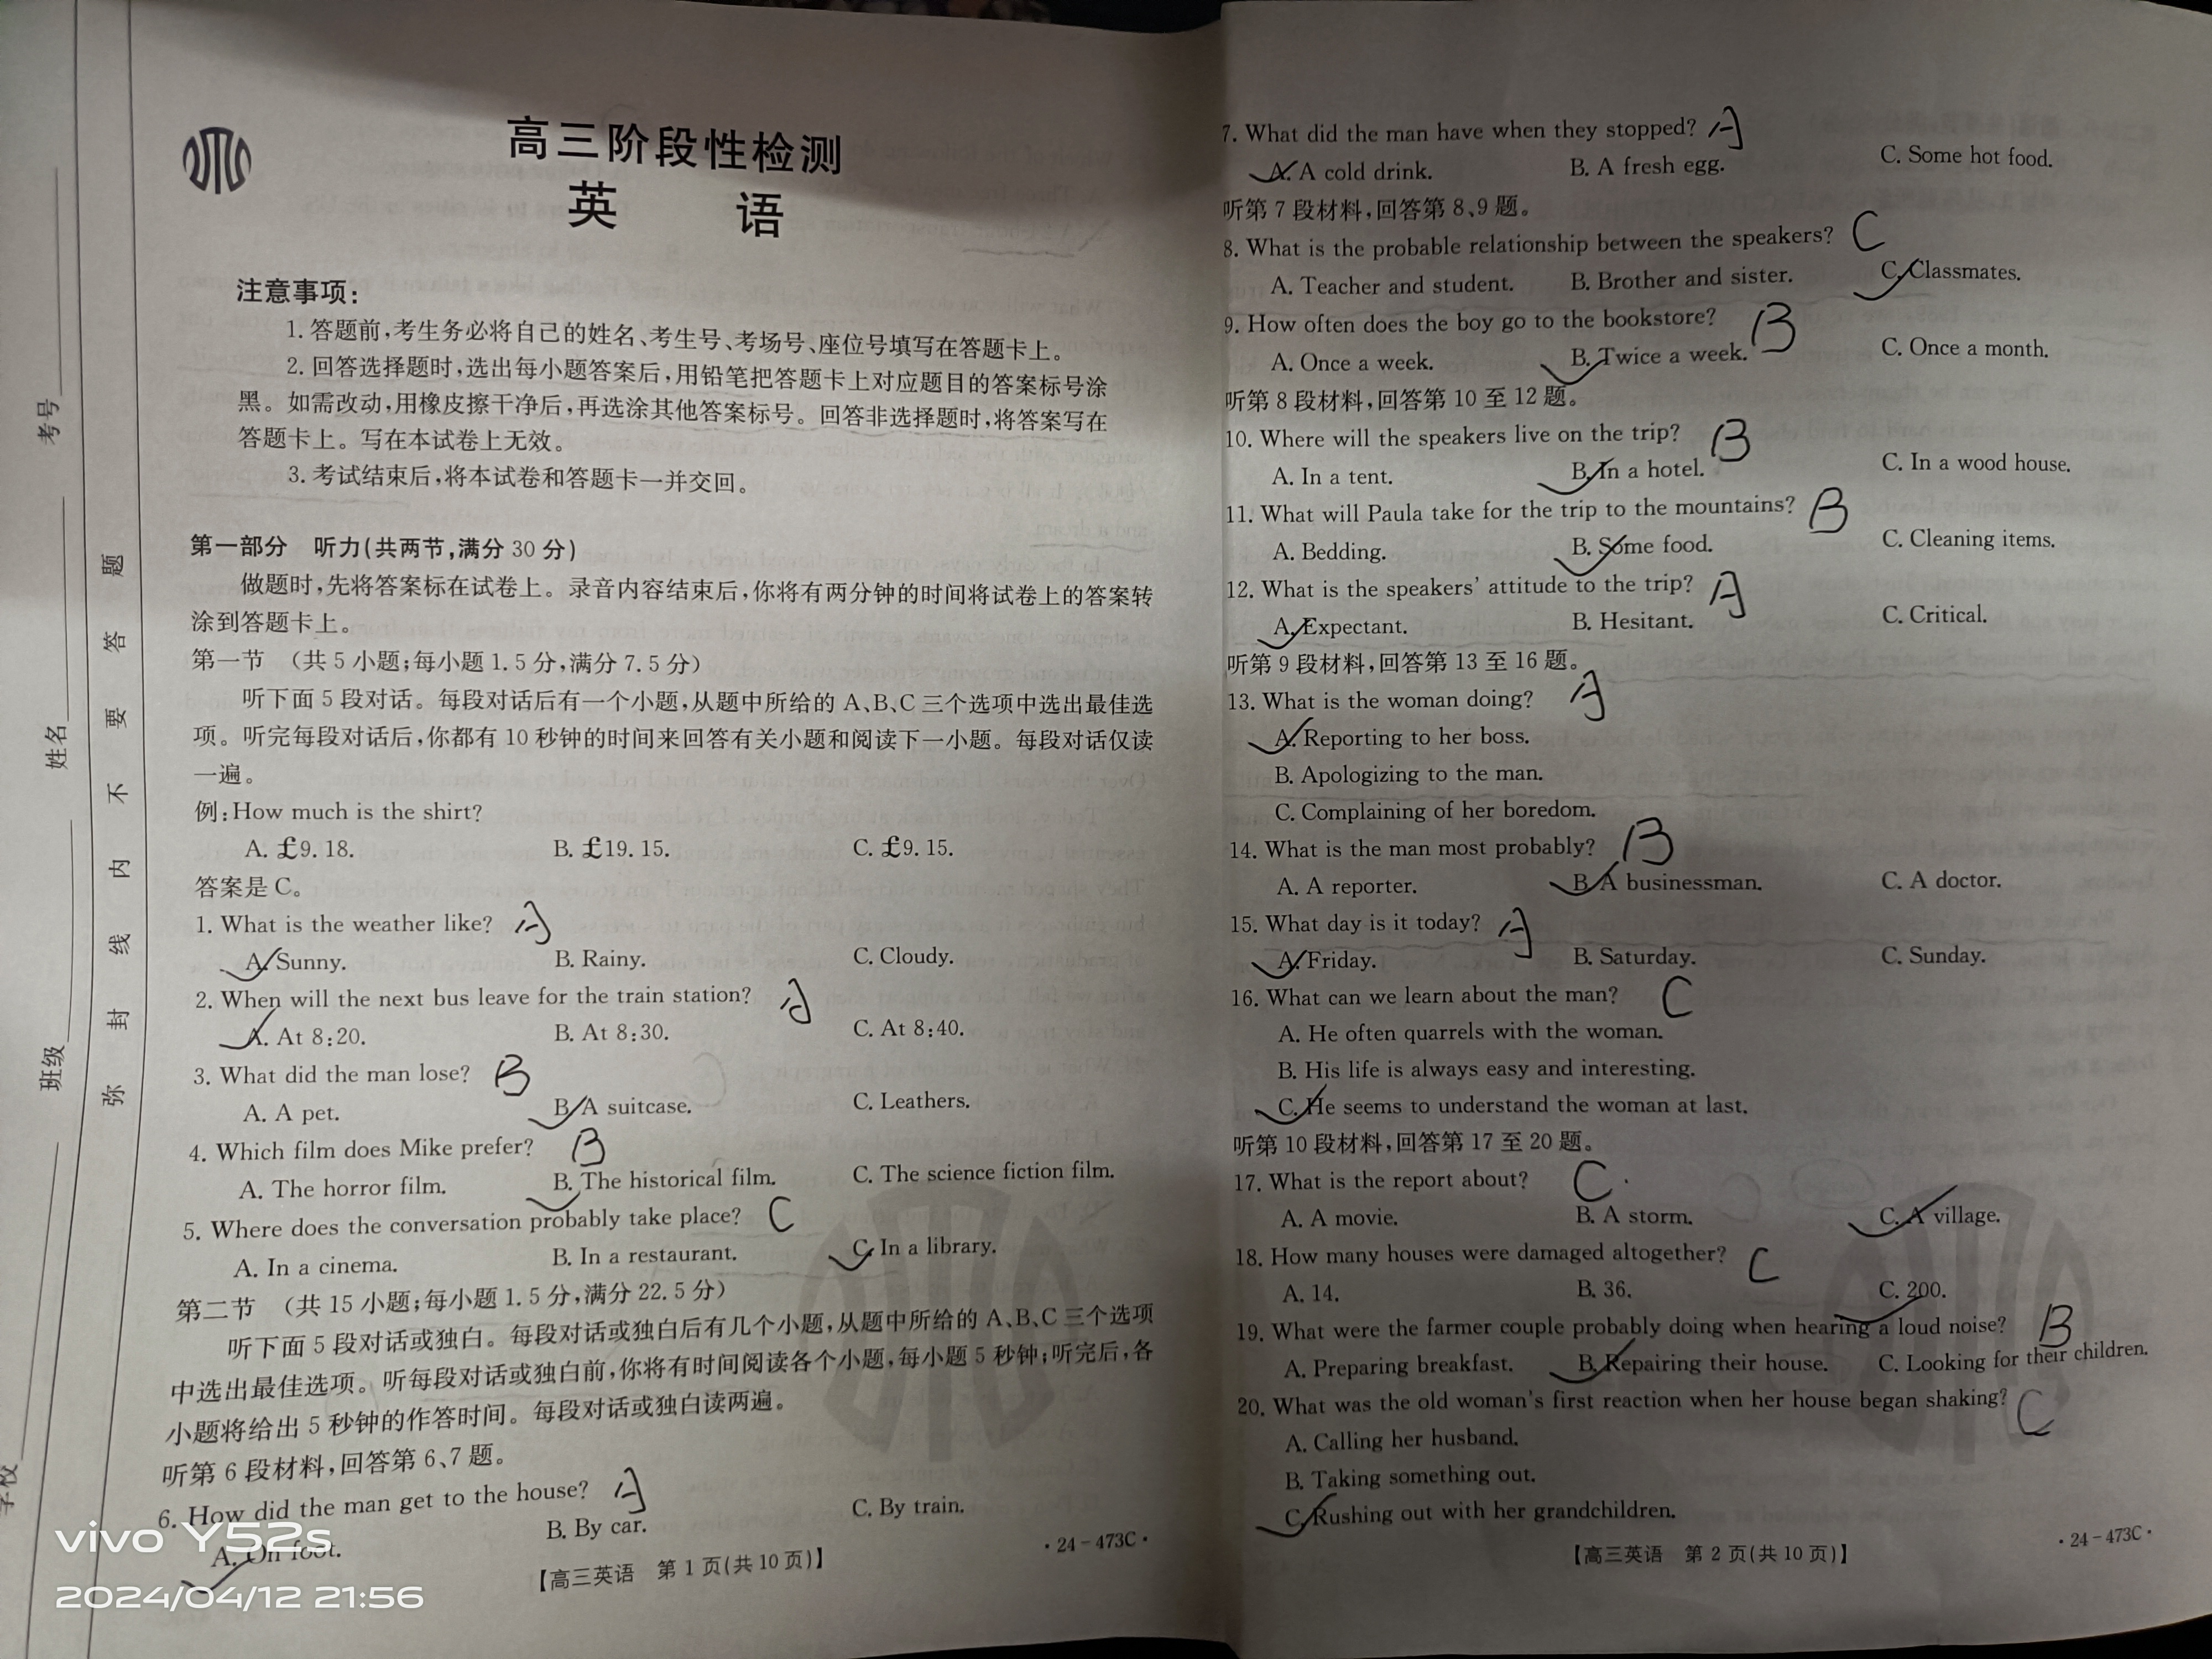 高三阶段性检测
英 语
注意事项:
1. 答题前,考生务必将自己的姓名、考生号、考场号、座位号填写在答题卡上。
2. 回答选择题时,选出每小题答案后,用铅笔把答题卡上对应题目的答案标号涂
黑。如需改动,用橡皮擦干净后,再选涂其他答案标号。回答非选择题时,将答案写在
答题卡上。写在本试卷上无效。
3. 考试结束后,将本试卷和答题卡一并交回。
第一部分 听力(共两节,满分 30 分)
做题时,先将答案标在试卷上。录音内容结束后,你将有两分钟的时间将试卷上的答案转
涂到答题卡上。
第一节 (共 5 小题;每小题 1. 5 分,满分 7. 5 分)
听下面 5 段对话。每段对话后有一个小题,从题中所给的 A、B、C 三个选项中选出最佳选
项。听完每段对话后,你都有 10 秒钟的时间来回答有关小题和阅读下一小题。每段对话仅读
一遍。
例:How much is the shirt?
A. £9. 18. B. £19. 15. C. £9. 15.
答案是 C。
1. What is the weather like? A
A. Sunny. B. Rainy. C. Cloudy.
2. When will the next bus leave for the train station? A
A. At 8:20. B. At 8:30. C. At 8:40.
3. What did the man lose? B
A. A pet. B. A suitcase. C. Leathers.
4. Which film does Mike prefer? B
A. The horror film. B. The historical film. C. The science fiction film.
5. Where does the conversation probably take place? C
A. In a cinema. B. In a restaurant. C. In a library.
第二节 (共 15 小题;每小题 1. 5 分,满分 22. 5 分)
听下面 5 段对话或独白。每段对话或独白后有几个小题,从题中所给的 A、B、C 三个选项
中选出最佳选项。听每段对话或独白前,你将有时间阅读各个小题,每小题 5 秒钟;听完后,各
小题将给出 5 秒钟的作答时间。每段对话或独白读两遍。
听第 6 段材料,回答第 6、7 题。
6. How did the man get to the house? A
A. On foot. B. By car. C. By train.
【高三英语 第 1 页(共 10 页)】 · 24-473C ·
7. What did the man have when they stopped? A
A. A cold drink. B. A fresh egg. C. Some hot food.
听第 7 段材料,回答第 8、9 题。
8. What is the probable relationship between the speakers? C
A. Teacher and student. B. Brother and sister. C. Classmates.
9. How often does the boy go to the bookstore? B
A. Once a week. B. Twice a week. C. Once a month.
听第 8 段材料,回答第 10 至 12 题。
10. Where will the speakers live on the trip? B
A. In a tent. B. In a hotel. C. In a wood house.
11. What will Paula take for the trip to the mountains? B
A. Bedding. B. Some food. C. Cleaning items.
12. What is the speakers' attitude to the trip? A
A. Expectant. B. Hesitant. C. Critical.
听第 9 段材料,回答第 13 至 16 题。
13. What is the woman doing? A
A. Reporting to her boss.
B. Apologizing to the man.
C. Complaining of her boredom.
14. What is the man most probably? B
A. A reporter. B. A businessman. C. A doctor.
15. What day is it today? A
A. Friday. B. Saturday. C. Sunday.
16. What can we learn about the man? C
A. He often quarrels with the woman.
B. His life is always easy and interesting.
C. He seems to understand the woman at last.
听第 10 段材料,回答第 17 至 20 题。
17. What is the report about? C
A. A movie. B. A storm. C. A village.
18. How many houses were damaged altogether? C
A. 14. B. 36. C. 200.
19. What were the farmer couple probably doing when hearing a loud noise? B
A. Preparing breakfast. B. Repairing their house. C. Looking for their children.
20. What was the old woman's first reaction when her house began shaking? C
A. Calling her husband.
B. Taking something out.
C. Rushing out with her grandchildren.
【高三英语 第 2 页(共 10 页)】 · 24-473C ·
考号
姓名
班级
学校
弥 封 线 内 不 要 答 题
vivo Y52s
2024/04/12 21:56